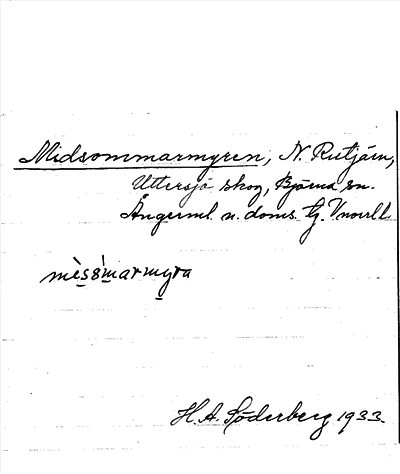 Midsommarmyren, N. Rutjärn,
Uttersjö skog, Björna sn.
Ångerml. n. doms. tg. Vnorrl.
mèss̀marmyra
H.A. Söderberg 1933.